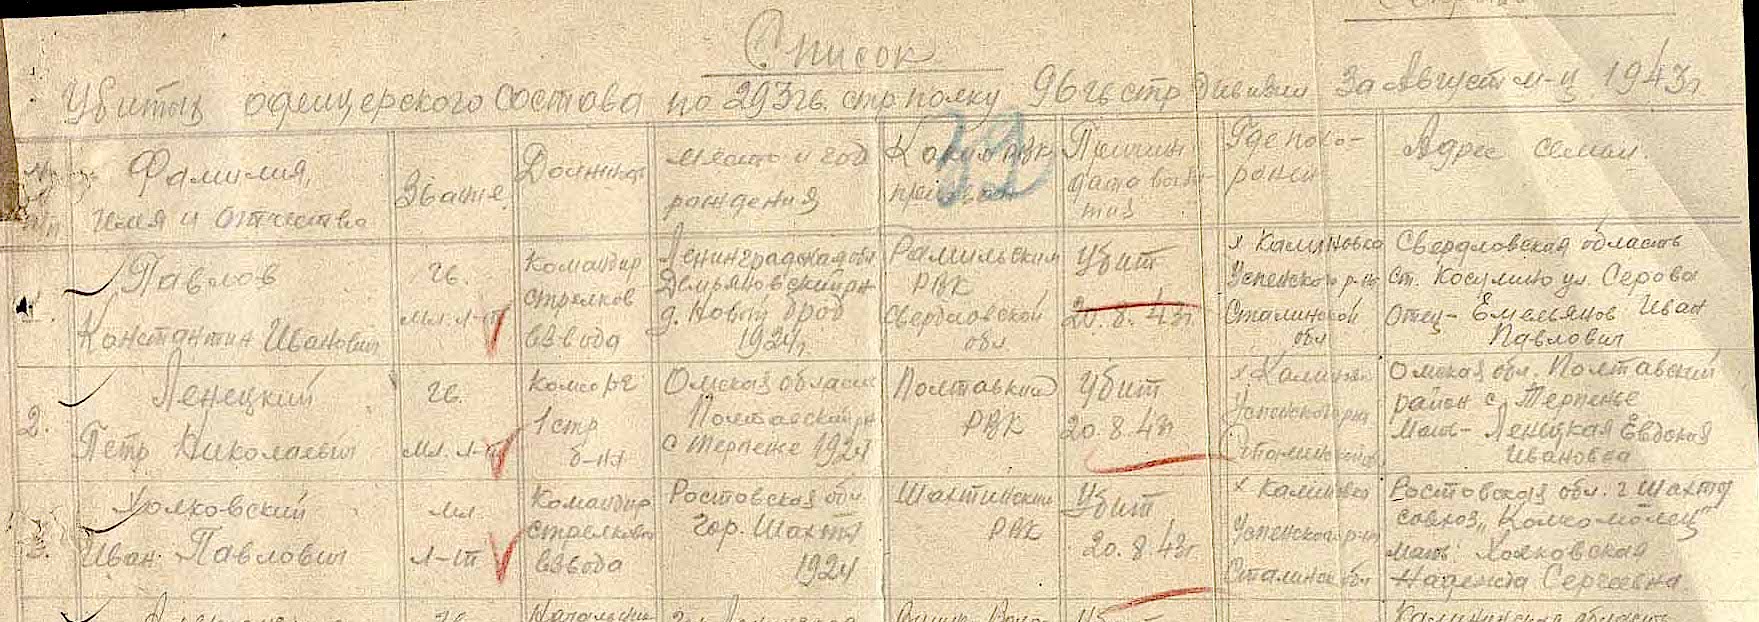 Список
Убитых офицерского состава по 293 гв. стр. полку 96 гв стр дивизии за Август м-ц 1943г
39
Фамилия,
имя и отчество
Звание
Должност
Место и год
рождения
Каким РВК
призван
Причин
дата выбы-
тия
Где похо-
ронен
Адрес семьи.
1.
Павлов
Константин Иванович
гв.
мл. л-т
Командир
стрелков
взвода
Ленинградская обл
Демьяновский рн
д. Новый брод
1924г.
РВК
Свердловской
обл
Убит
20.8.43г
х Калиновка
Успенского р-на
Сталинской
обл
Свердловская область
ст. Косулино ул. Серова
Отец- Емельянов Иван
Павлович
2.
Ленецкий
Петр Николаевич
гв.
мл. л-т
Комсорг
1 стр
б-на
Омская област
Полтавский рн
с Терпенье 1924
Полтавкий
РВК
Убит
20.8.43г
х Калиновка
Успенского рна
Сталинской
Омская обл. Полтавский
район с. Терпенье
Мать- Ленецкая Евдокия
Ивановна
3.
Холковский
Иван Павлович
мл.
л-т
Командир
стрелково
взвода
Ростовская обл
гор. Шахты
1924
Шахтинским
РВК
Убит
20.8.43г
х Калиновка
Успенского р-на
Сталинск обл
Ростовская обл. г Шахты
совхоз „Комсомолец"
мать Холковская
Надежда Сергеевна.
гв.
Начальник
Уб
Калининская область